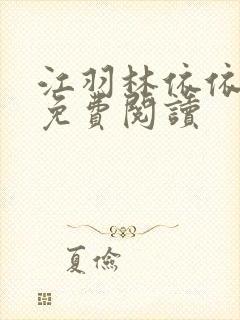 江羽林依依
免費閱讀
夏儉